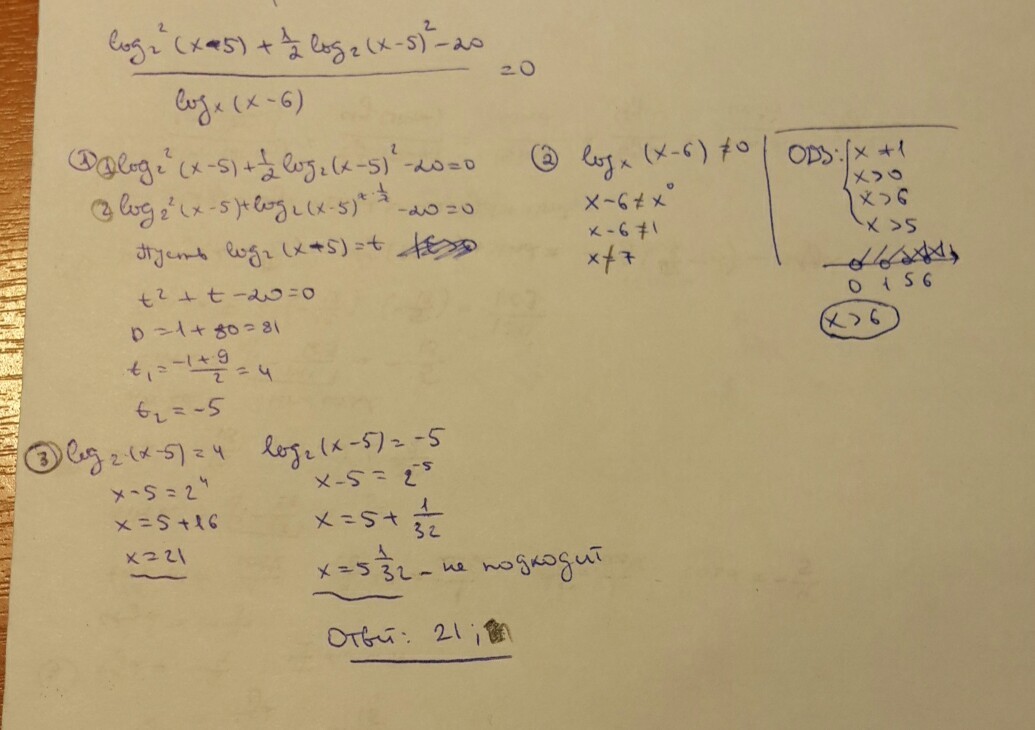 log₂²(x-5) + 1/2 log₂(x-5)² - 20
=0
logₓ(x-6)
① ① log₂²(x-5) + 1/2 log₂(x-5)² - 20=0
② log₂²(x-5)+log₂(x-5)^(2·1/2) - 20=0
Пусть log₂(x-5)=t
t² + t - 20=0
D = 1 + 80 = 81
t₁ = (-1+9)/2 = 4
t₂ = -5
② logₓ(x-6) ≠0
x-6≠x⁰
x-6≠1
x≠7
ОДЗ: x ≠1
x>0
x>6
x>5
0 1 5 6
x>6
③ log₂(x-5)=4
x-5=2⁴
x=5+16
x=21
log₂(x-5)=-5
x-5=2⁻⁵
x=5+ 1/32
x=5 1/32 - не подходит
Ответ: 21;